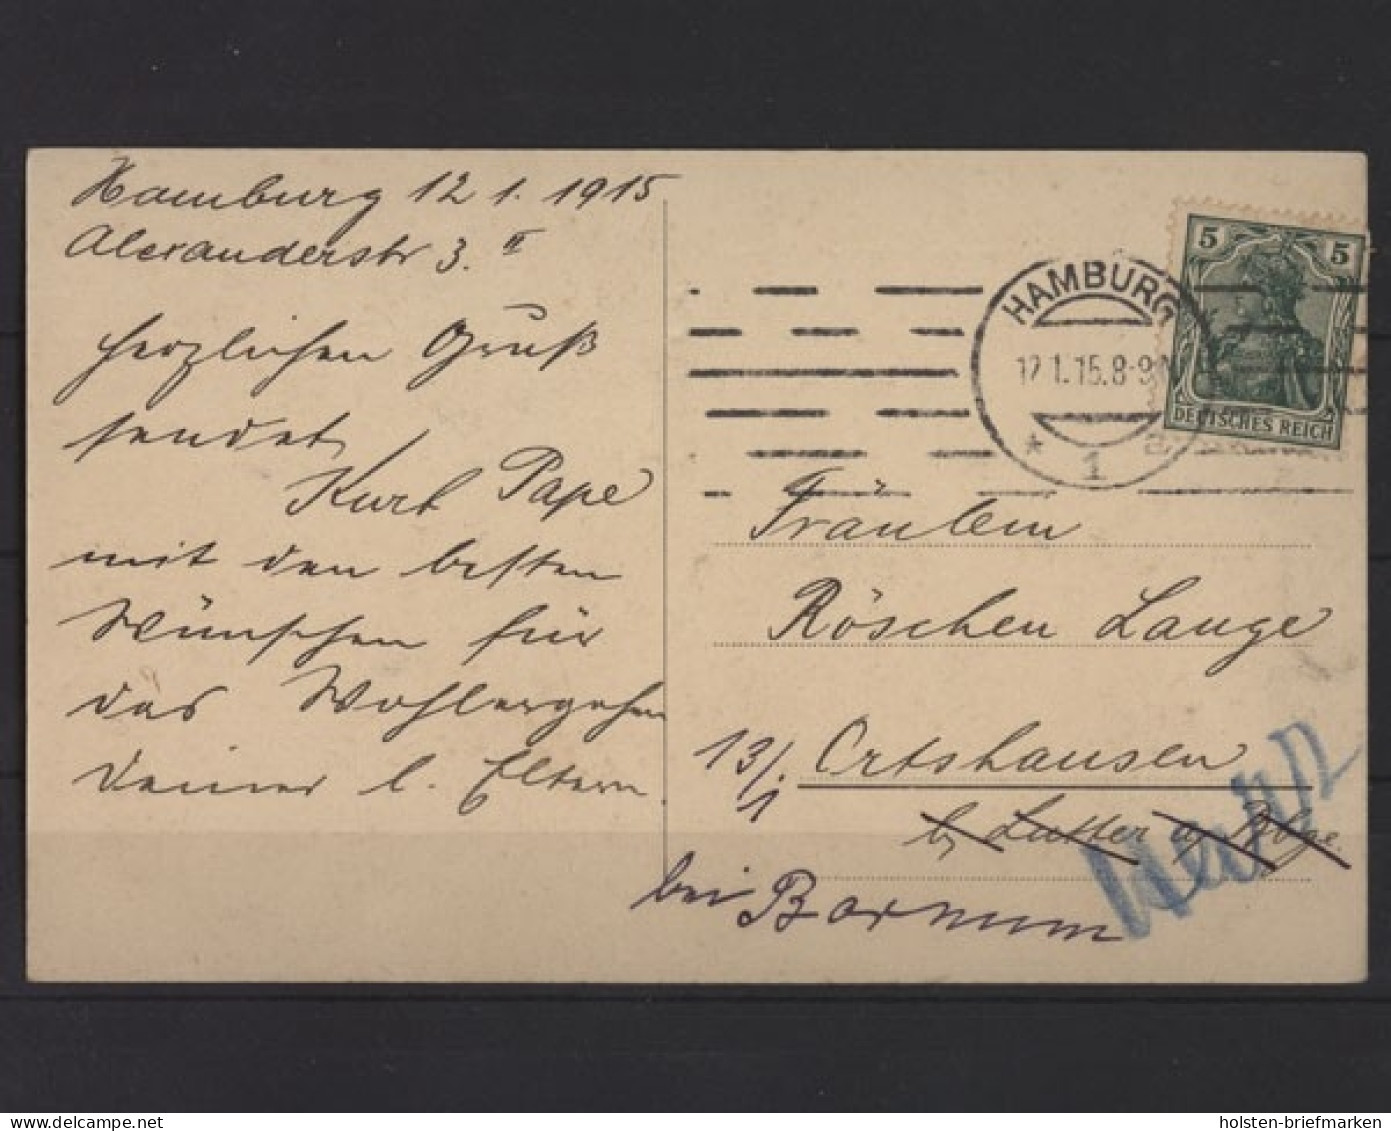 Hamburg 12 1. 1915
Alexanderstr 3. II
herzlichen Gruß
sendet
Kurt Papе
mit den besten
Wünschen für
das Wohlergehen
deiner l. Eltern.
HAMBURG
12.1.15.8-9N
* 1 a.
5 5
DEUTSCHES REICH
Fräulein
Röschen Lange
13/. Ortshausen
1
b/ Lutter a/ Bbge.
bei Bornum
holsten-briefmarken